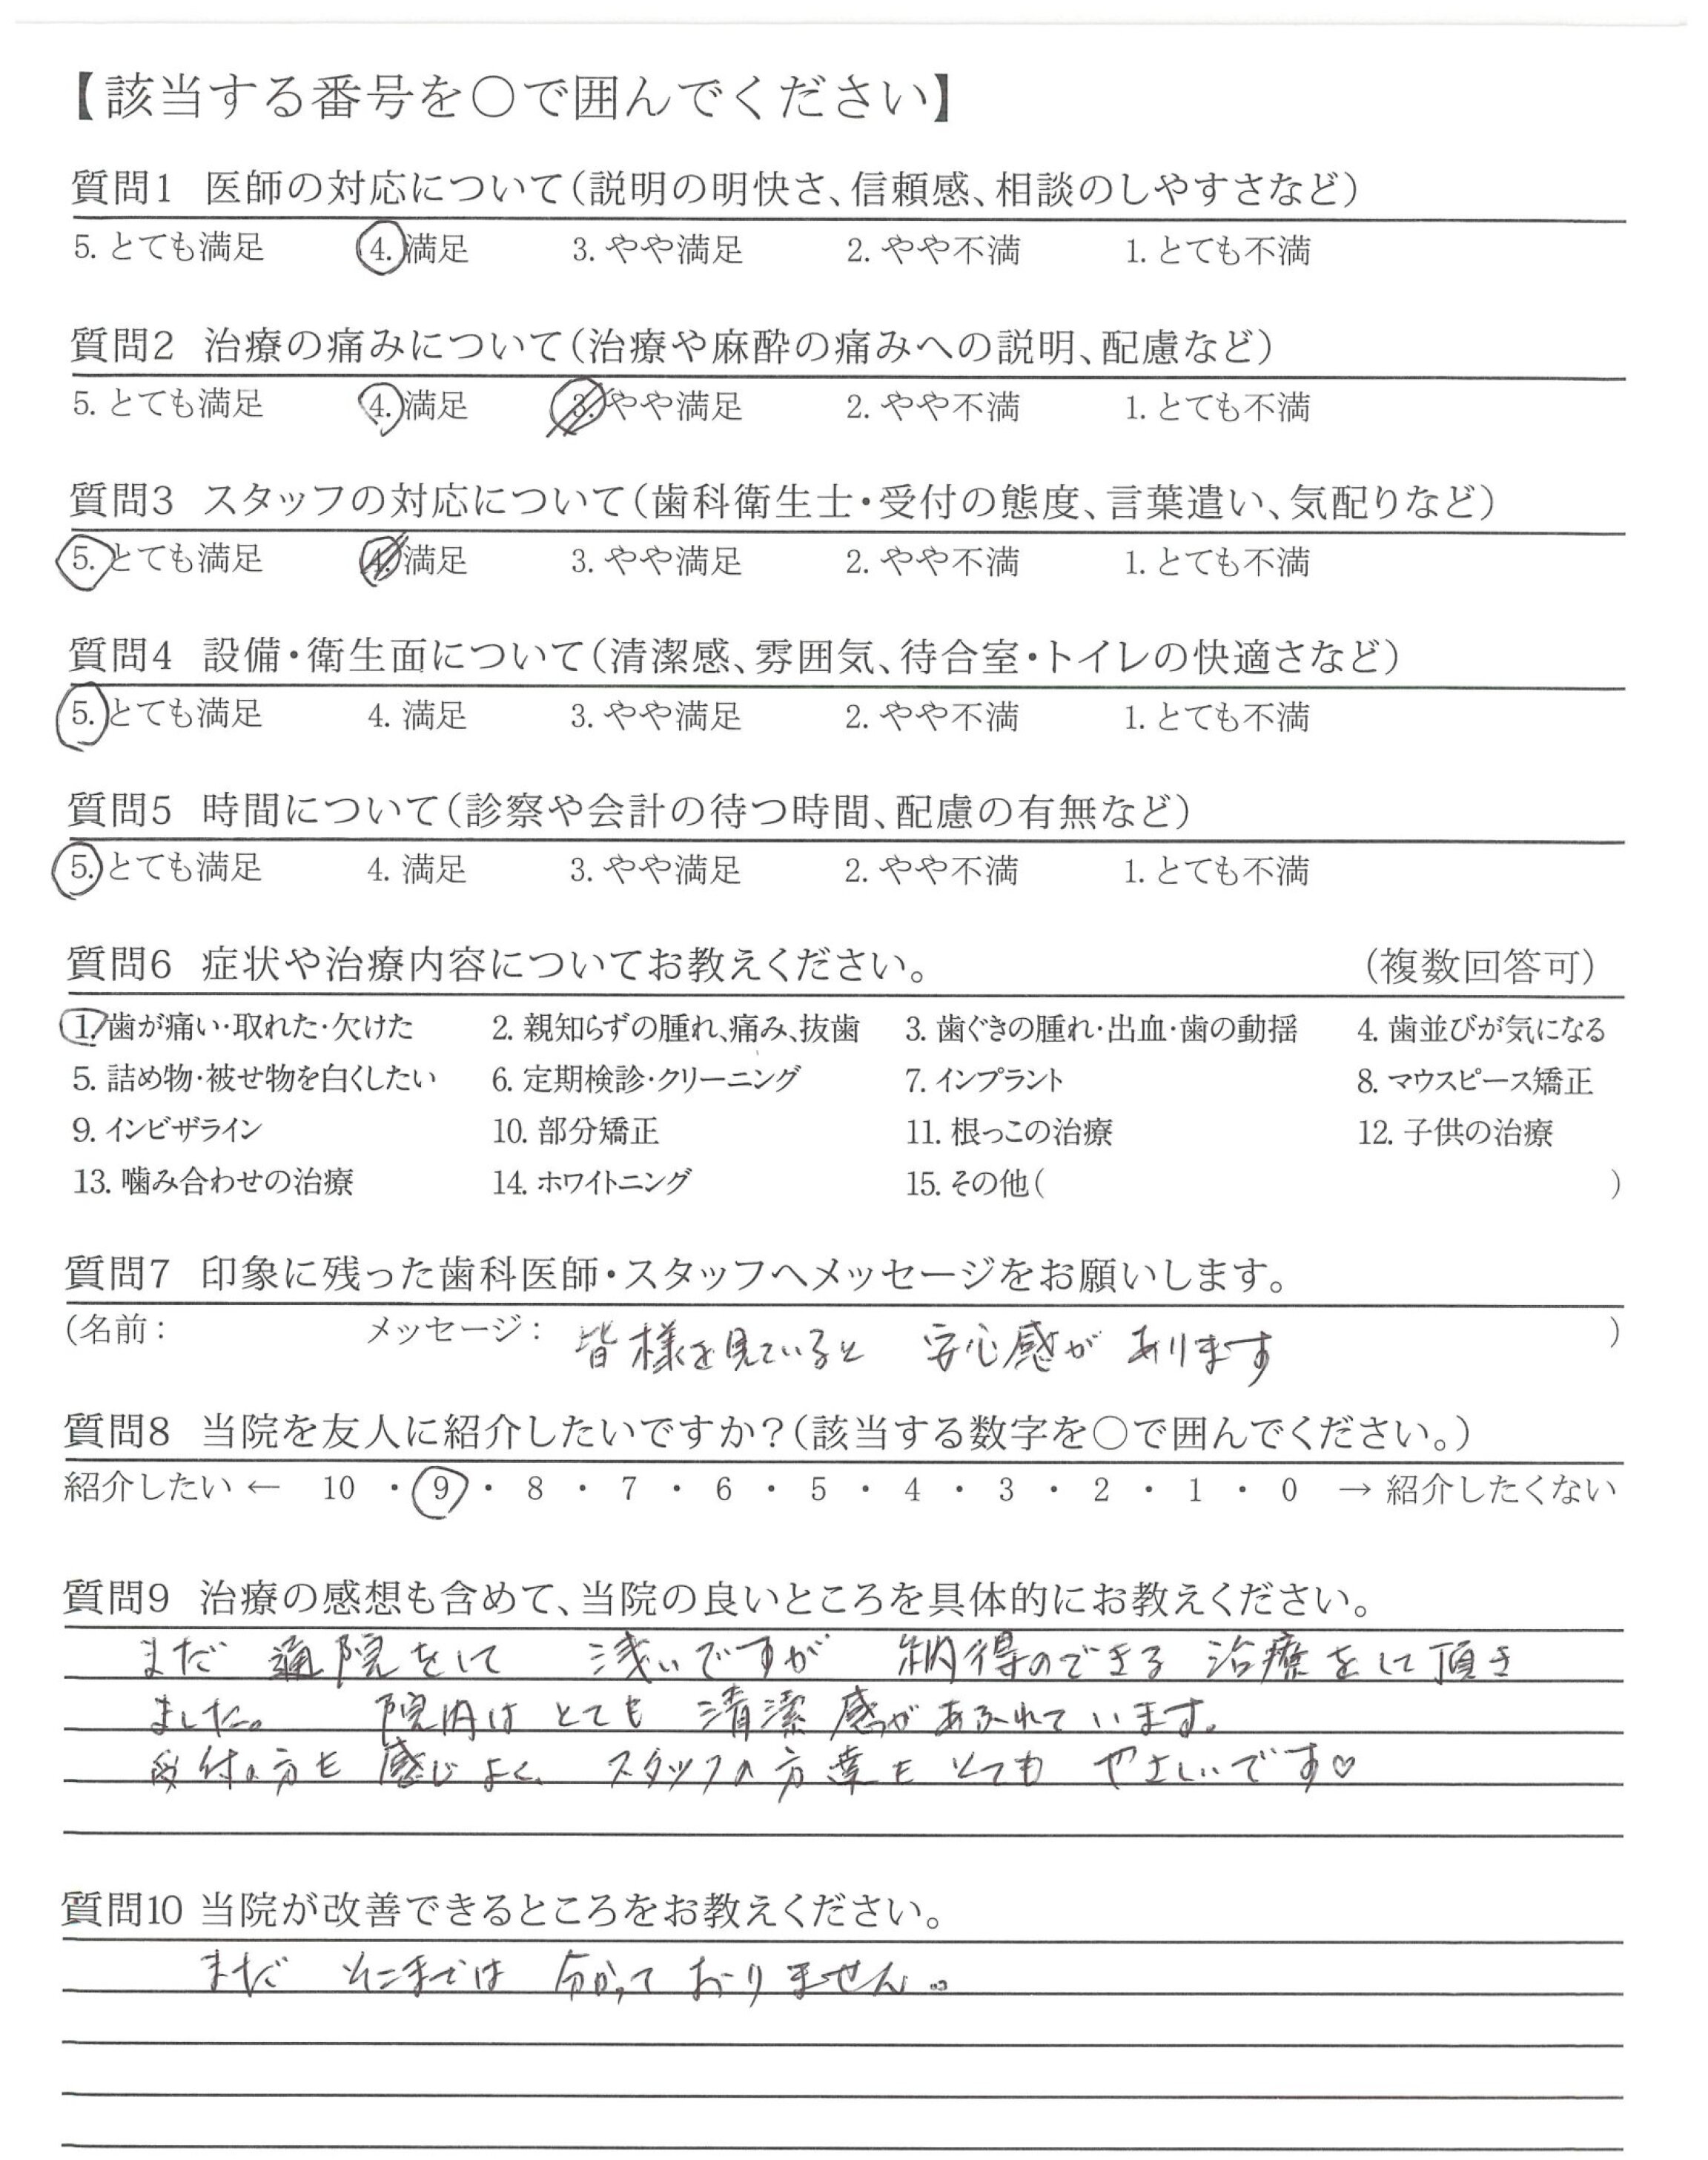 【該当する番号を○で囲んでください】
質問1 医師の対応について(説明の明快さ、信頼感、相談のしやすさなど)
5. とても満足 4. 満足 3. やや満足 2. やや不満 1. とても不満
質問2 治療の痛みについて(治療や麻酔の痛みへの説明、配慮など)
5. とても満足 4. 満足 3. やや満足 2. やや不満 1. とても不満
質問3 スタッフの対応について(歯科衛生士・受付の態度、言葉遣い、気配りなど)
5. とても満足 4. 満足 3. やや満足 2. やや不満 1. とても不満
質問4 設備・衛生面について(清潔感、雰囲気、待合室・トイレの快適さなど)
5. とても満足 4. 満足 3. やや満足 2. やや不満 1. とても不満
質問5 時間について(診察や会計の待つ時間、配慮の有無など)
5. とても満足 4. 満足 3. やや満足 2. やや不満 1. とても不満
質問6 症状や治療内容についてお教えください。 (複数回答可)
1. 歯が痛い・取れた・欠けた 2. 親知らずの腫れ、痛み、抜歯 3. 歯ぐきの腫れ・出血・歯の動揺 4. 歯並びが気になる
5. 詰め物・被せ物を白くしたい 6. 定期検診・クリーニング 7. インプラント 8. マウスピース矯正
9. インビザライン 10. 部分矯正 11. 根っこの治療 12. 子供の治療
13. 噛み合わせの治療 14. ホワイトニング 15. その他( )
質問7 印象に残った歯科医師・スタッフへメッセージをお願いします。
(名前: メッセージ: 皆様を見ていると 安心感が あります )
質問8 当院を友人に紹介したいですか?(該当する数字を○で囲んでください。)
紹介したい ← 10 ・ 9 ・ 8 ・ 7 ・ 6 ・ 5 ・ 4 ・ 3 ・ 2 ・ 1 ・ 0 → 紹介したくない
質問9 治療の感想も含めて、当院の良いところを具体的にお教えください。
まだ 通院をして 浅いですが 納得のできる 治療をして頂き
ました。 院内は とても 清潔感があふれています。
受付の方も 感じよく、スタッフの方達も とても やさしいです♡
質問10 当院が改善できるところをお教えください。
まだ そこまでは 分かって おりません。